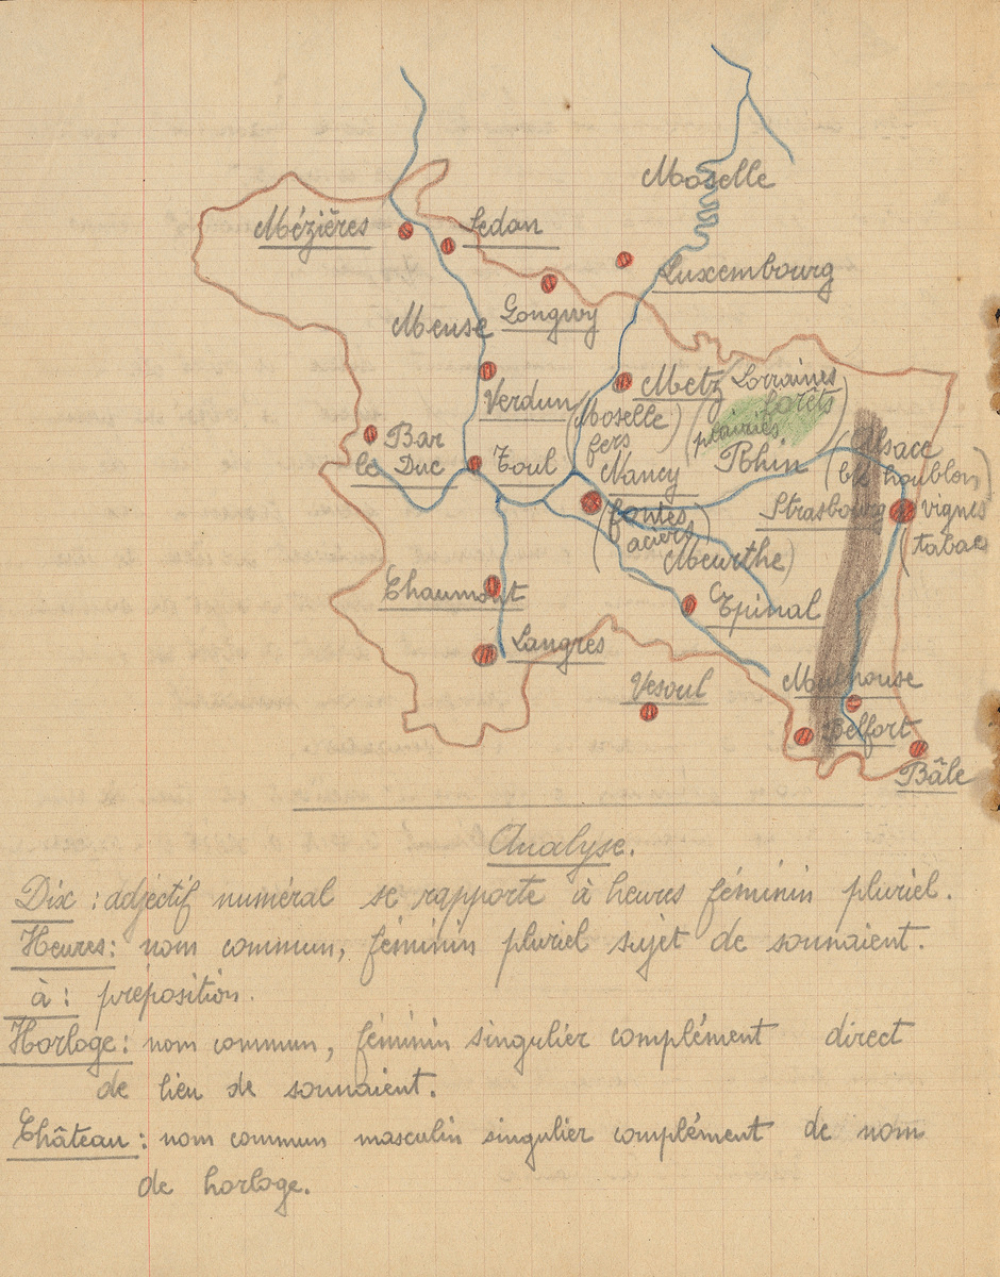 Moselle
Mézières
Sedan
Luxembourg
Meuse
Longwy
Metz
Lorraines
forêts
Verdun
(Moselle
fers
(plairies
Bar
le Duc
Toul
Nancy
Rhin
(Alsace
blé houblon)
Strasbourg
vignes
(tabac
(fontes
aciers)
Meurthe)
Chaumont
Epinal
Langres
Mulhouse
Vesoul
Belfort
Bâle
Analyse.
Dix : adjectif numéral se rapporte à heures féminin pluriel.
Heures : nom commun, féminin pluriel sujet de sonnaient.
à : preposition.
Horloge : nom commun, féminin singulier complément direct
de lieu de sonnaient.
Château : nom commun masculin singulier complément de nom
de horloge.